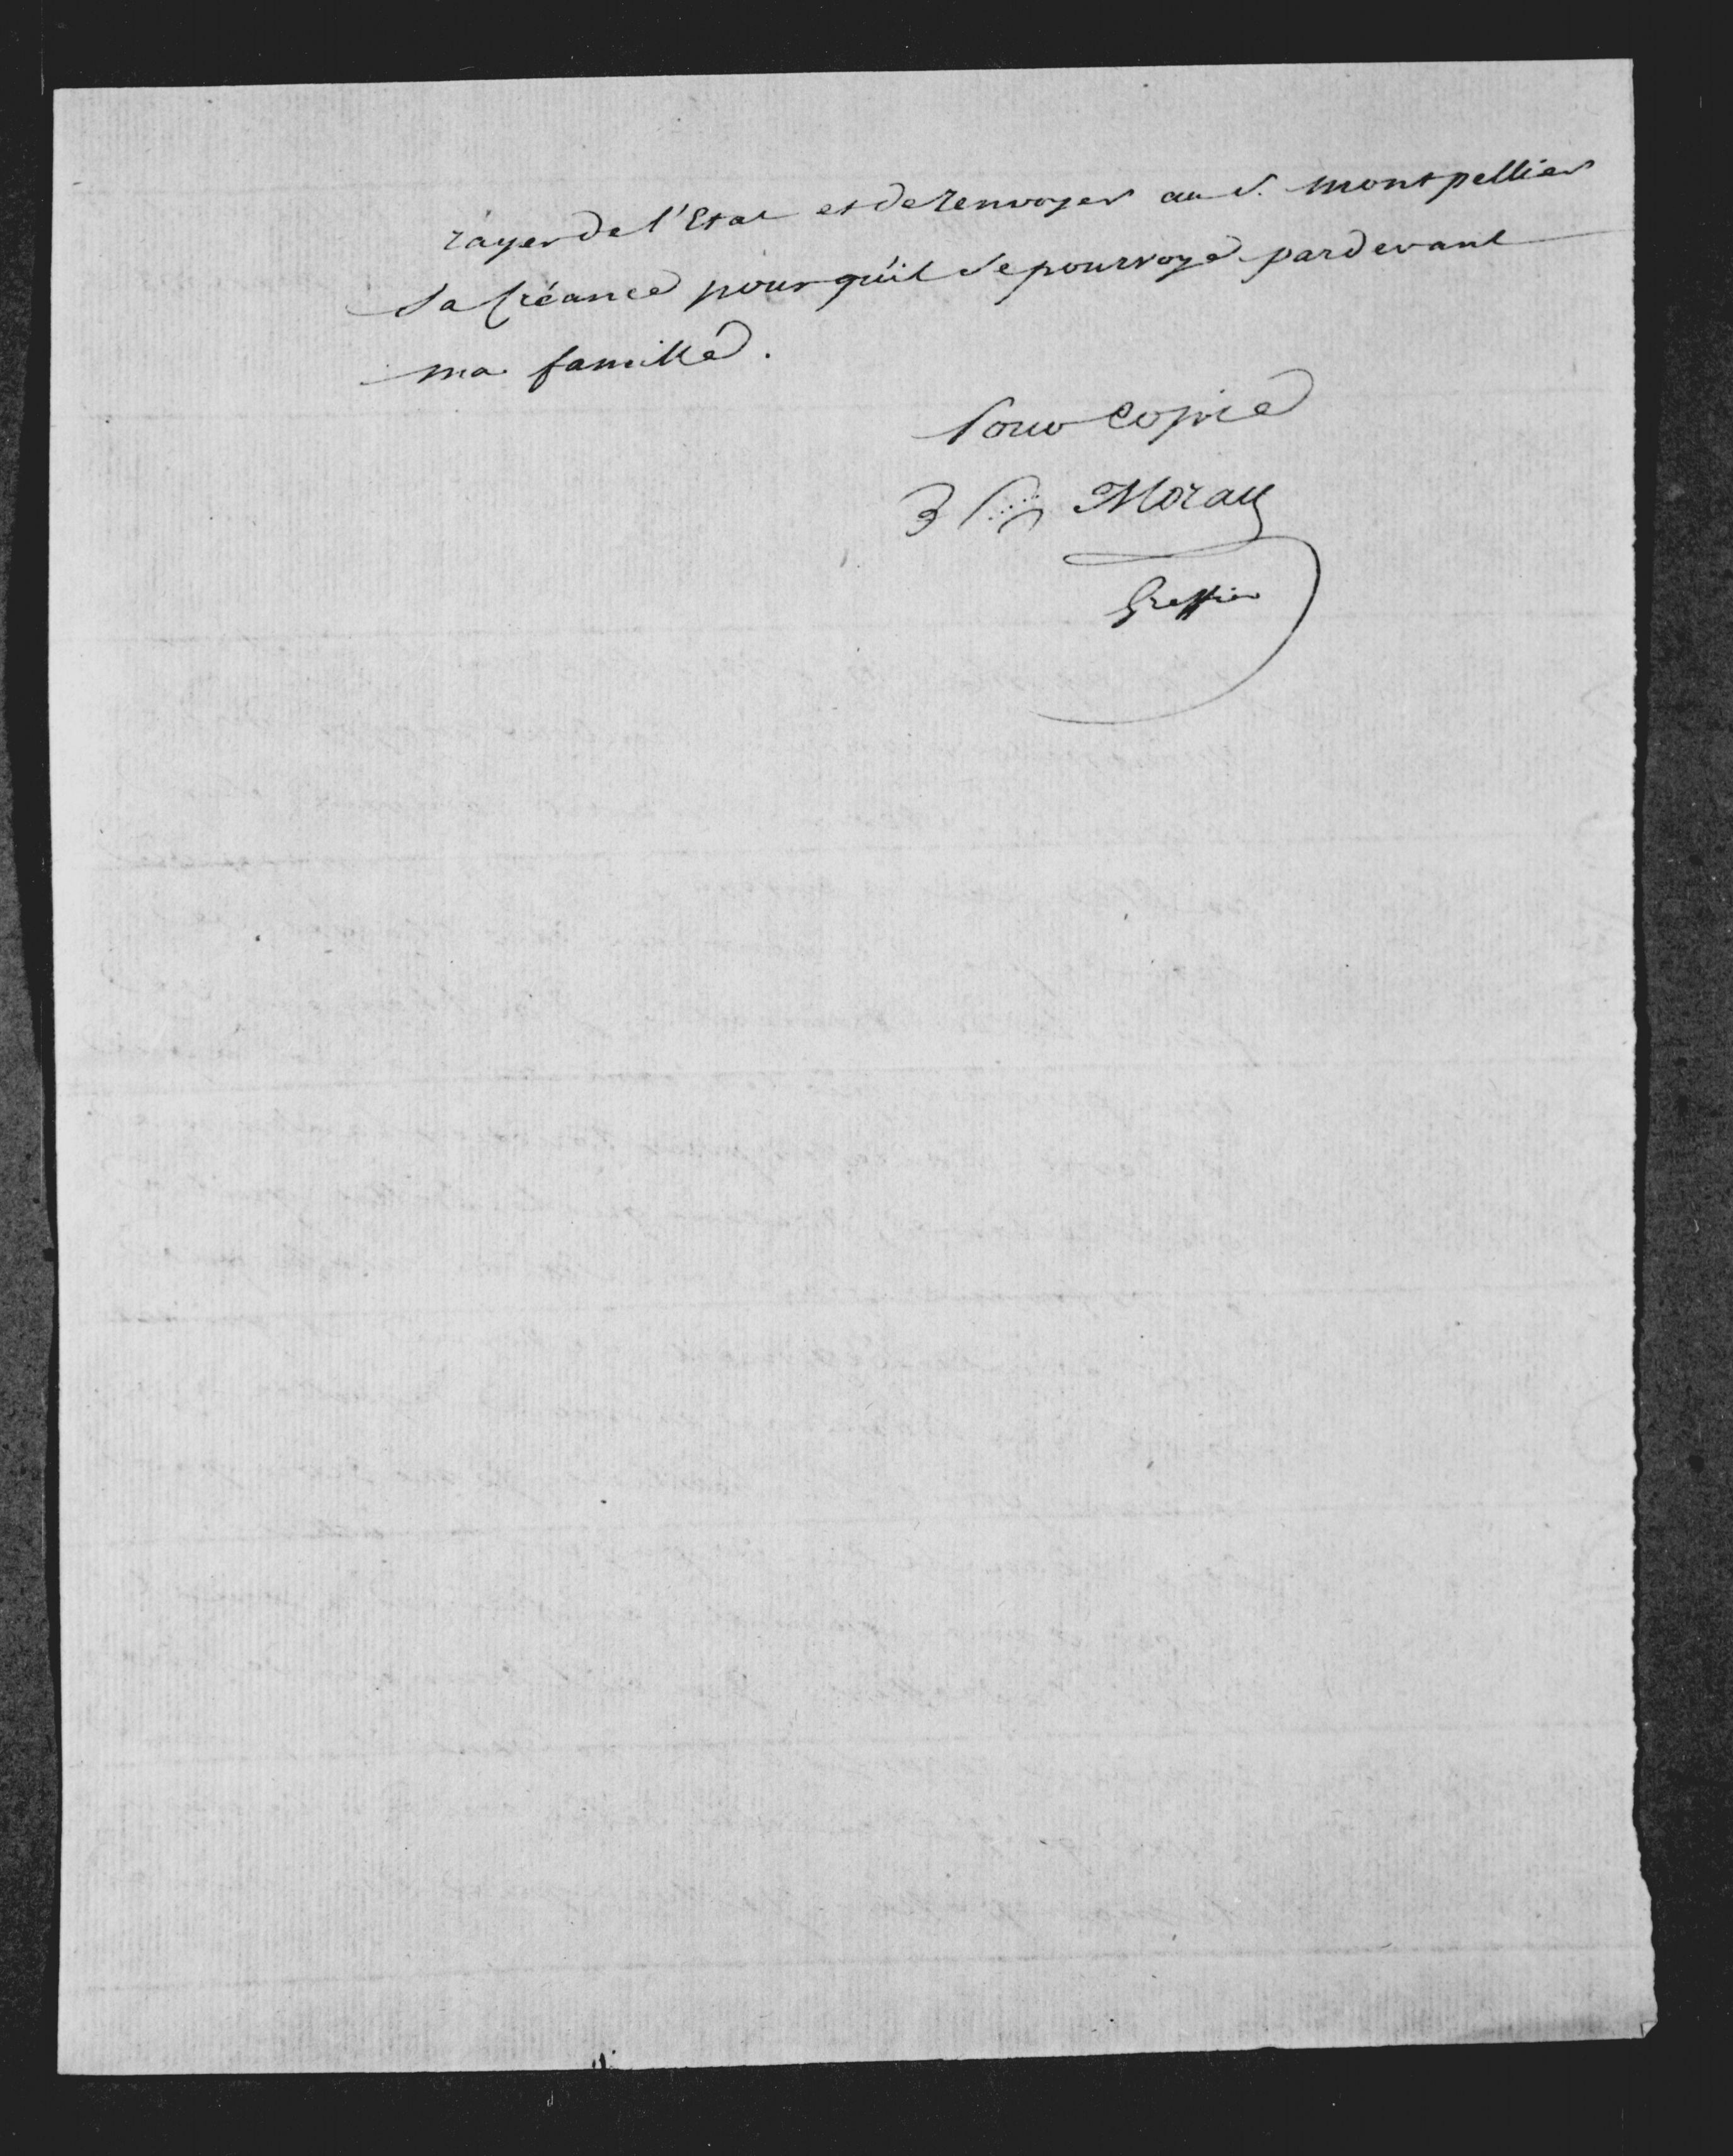 rayer de l'Etat et de renvoyer au S. Montpellier
sa Créance pour qu'il se pourvoye pardevant
ma famille.
Pour Copie
Morau
Greffier